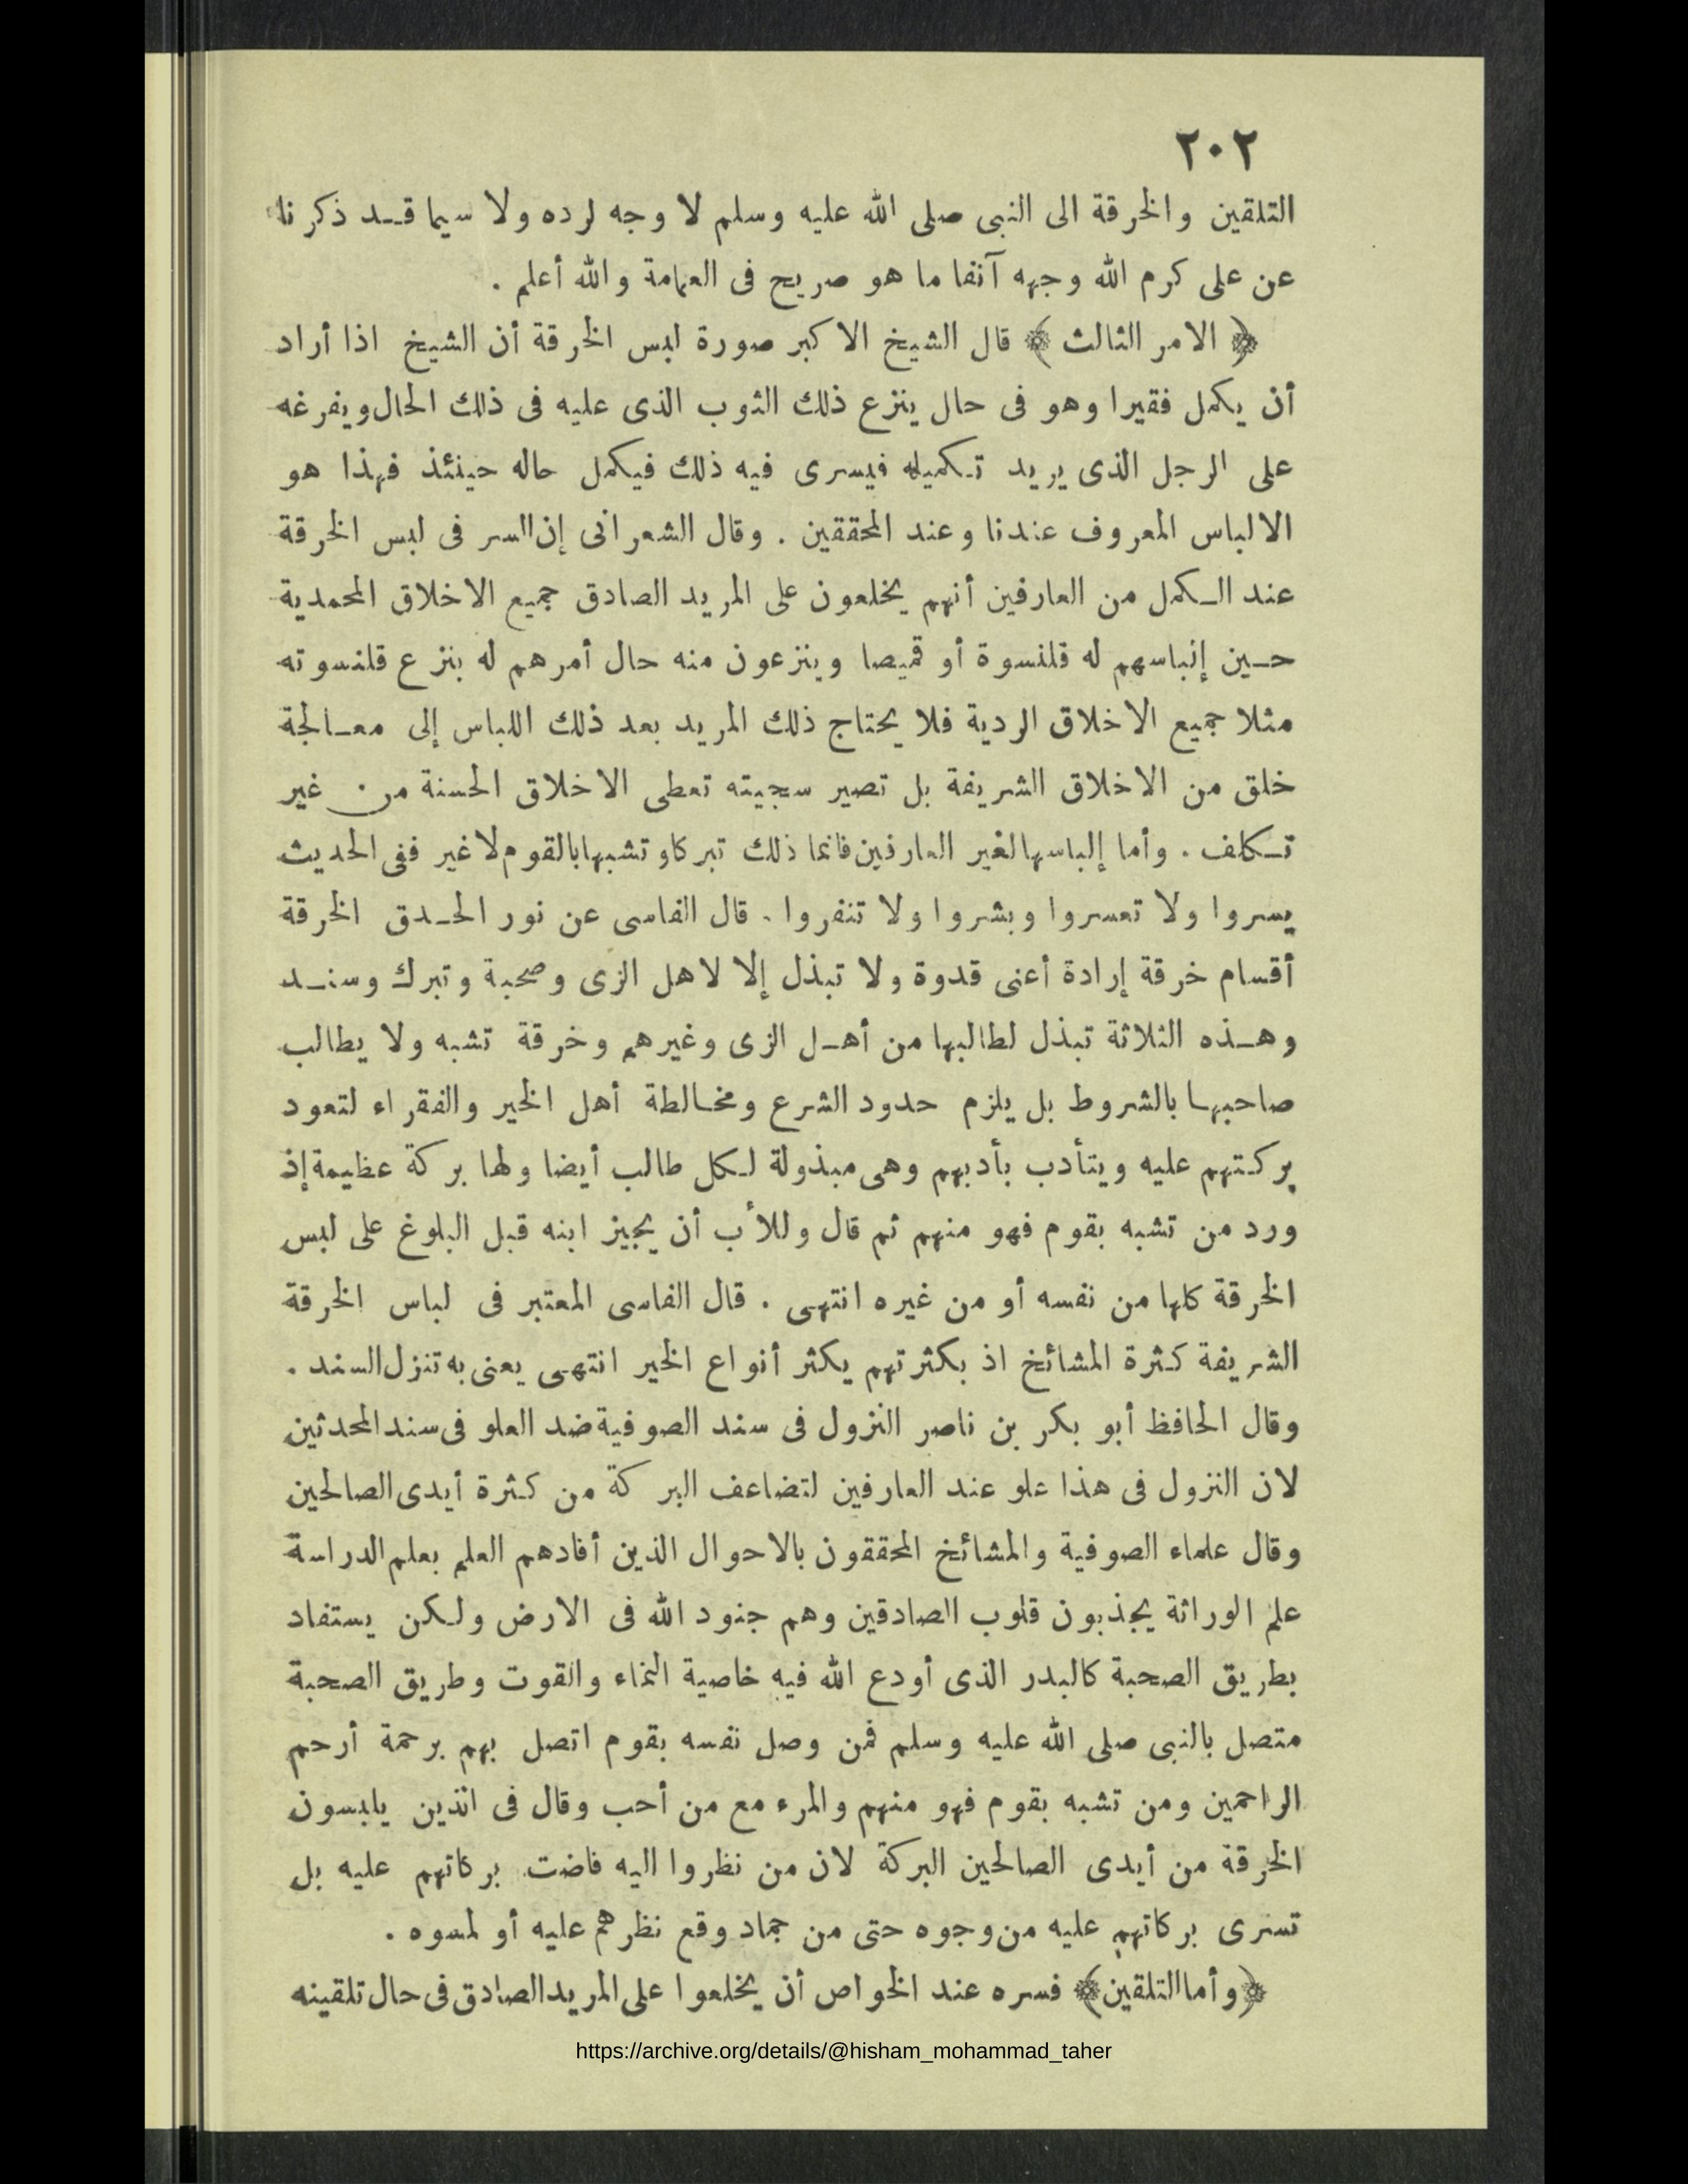 ٢٠٢
التلقين والخرقة الى النبى صلى الله عليه وسلم لا وجه لرده ولا سيما قد ذكرنا
عن على كرم الله وجهه آنفا ما هو صريح فى العمامة والله أعلم .
﴿ الامر الثالث ﴾ قال الشيخ الاكبر صورة لبس الخرقة أن الشيخ اذا أراد
أن يكمل فقيرا وهو فى حال ينزع ذلك الثوب الذى عليه فى ذلك الحال ويفرغه
على الرجل الذى يريد تكميله فيسرى فيه ذلك فيكمل حاله حينئذ فهذا هو
الالباس المعروف عندنا وعند المحققين . وقال الشعرانى إن السر فى لبس الخرقة
عند الكمل من العارفين أنهم يخلعون على المريد الصادق جميع الاخلاق المحمدية
حين إلباسهم له قلنسوة أو قميصا وينزعون منه حال أمرهم له بنزع قلنسوته
مثلا جميع الاخلاق الردية فلا يحتاج ذلك المريد بعد ذلك اللباس إلى معالجة
خلق من الاخلاق الشريفة بل تصير سجيته تعطى الاخلاق الحسنة من غير
تكلف . وأما إلباسها لغير العارفين فانما ذلك تبركا وتشبها بالقوم لا غير ففى الحديث
يسروا ولا تعسروا وبشروا ولا تنفروا . قال الفاسى عن نور الحدق الخرقة
أقسام خرقة إرادة أعنى قدوة ولا تبذل إلا لاهل الزى وصحبة وتبرك وسند
وهذه الثلاثة تبذل لطالبها من أهل الزى وغيرهم وخرقة تشبه ولا يطالب
صاحبها بالشروط بل يلزم حدود الشرع ومخالطة أهل الخير والفقراء لتعود
بركتهم عليه ويتأدب بأدبهم وهى مبذولة لكل طالب أيضا ولها بركة عظيمة إذ
ورد من تشبه بقوم فهو منهم ثم قال وللأب أن يجيز ابنه قبل البلوغ على لبس
الخرقة كلها من نفسه أو من غيره انتهى . قال الفاسى المعتبر فى لباس الخرقة
الشريفة كثرة المشائخ اذ بكثرتهم يكثر أنواع الخير انتهى يعنى به تنزل السند .
وقال الحافظ أبو بكر بن ناصر النزول فى سند الصوفية ضد العلو فى سند المحدثين
لان النزول فى هذا علو عند العارفين لتضاعف البركة من كثرة أيدى الصالحين
وقال علماء الصوفية والمشائخ المحققون بالاحوال الذين أفادهم العلم بعلم الدراسة
علم الوراثة يجذبون قلوب الصادقين وهم جنود الله فى الارض ولكن يستفاد
بطريق الصحبة كالبدر الذى أودع الله فيه خاصية النماء والقوت وطريق الصحبة
متصل بالنبى صلى الله عليه وسلم فمن وصل نفسه بقوم اتصل بهم برحمة أرحم
الراحمين ومن تشبه بقوم فهو منهم والمرء مع من أحب وقال فى الذين يلبسون
الخرقة من أيدى الصالحين البركة لان من نظروا اليه فاضت بركاتهم عليه بل
تسرى بركاتهم عليه من وجوه حتى من جماد وقع نظرهم عليه أو لمسوه .
﴿ وأما التلقين ﴾ فسره عند الخواص أن يخلعوا على المريد الصادق فى حال تلقينه
https://archive.org/details/@hisham_mohammad_taher